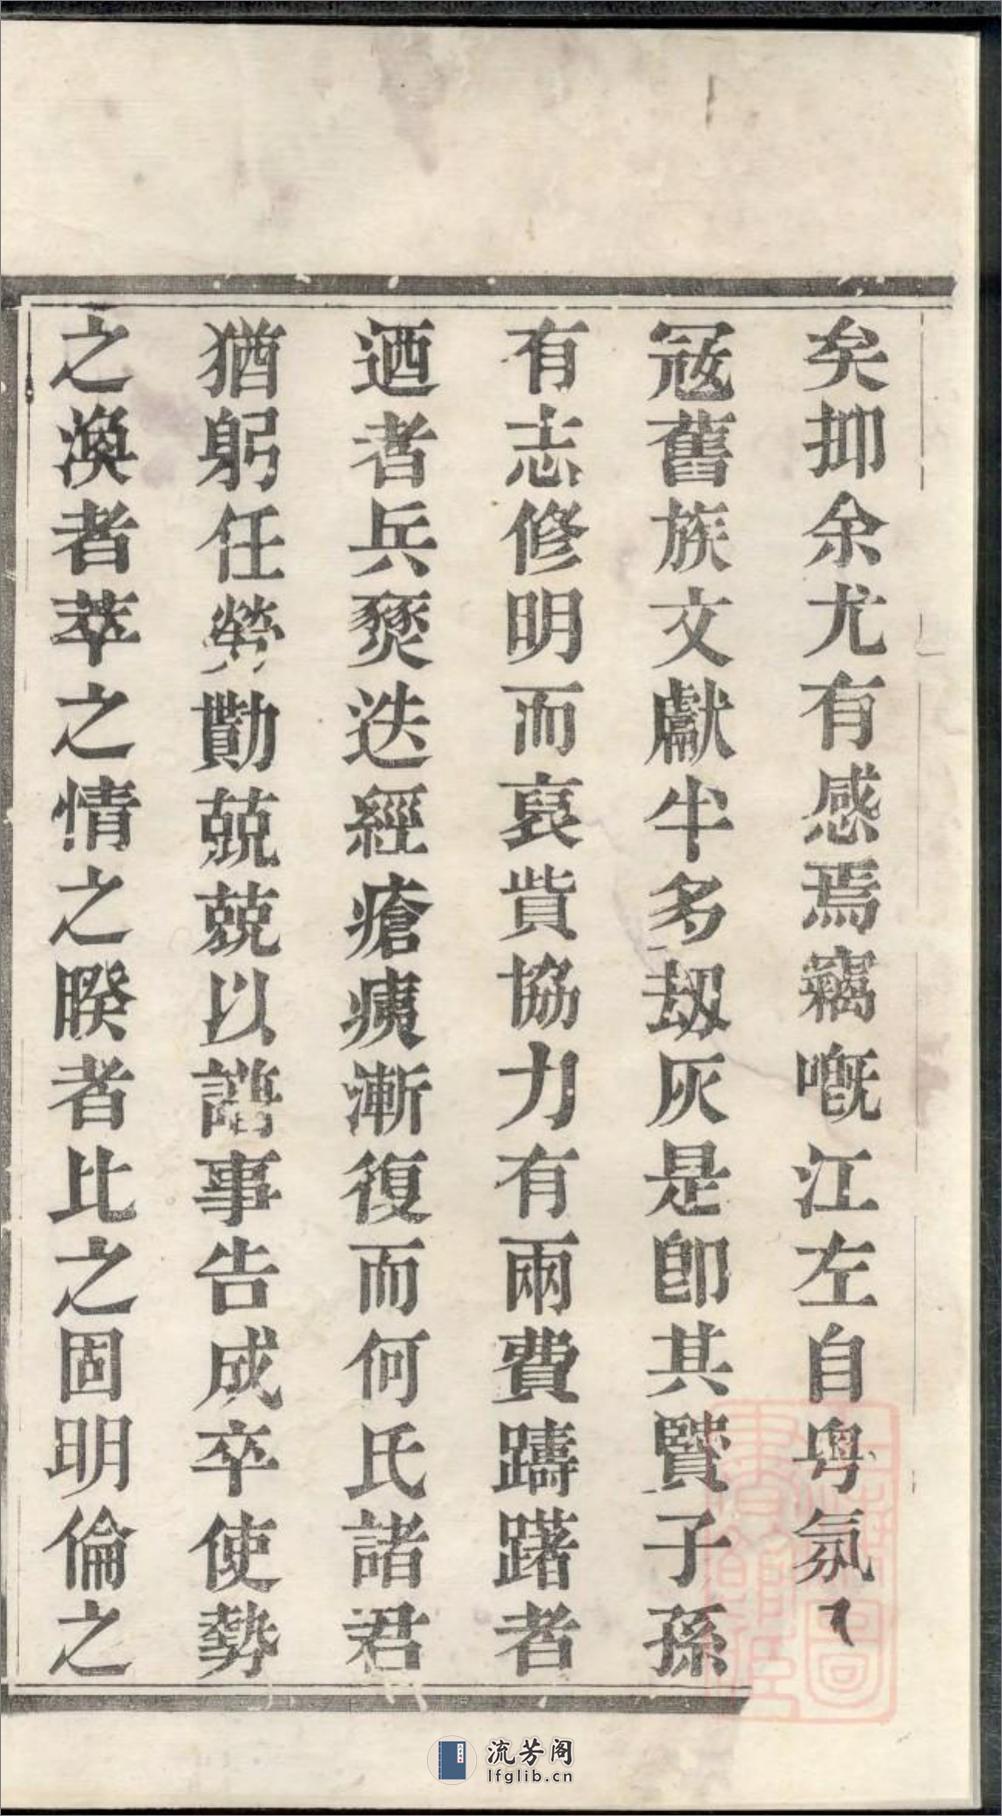 矣抑余尤有感焉竊嘅江左自粵氛
寇舊族文獻半多刼灰是卽其賢子孫
有志修明而裒貲協力有兩費躊躇者
迺者兵燹迭經瘡痍漸復而何氏諸君
猶躬任勞勩兢兢以譜事告成卒使勢
之渙者萃之情之暌者比之固明倫之
流芳阁
lfglib.cn